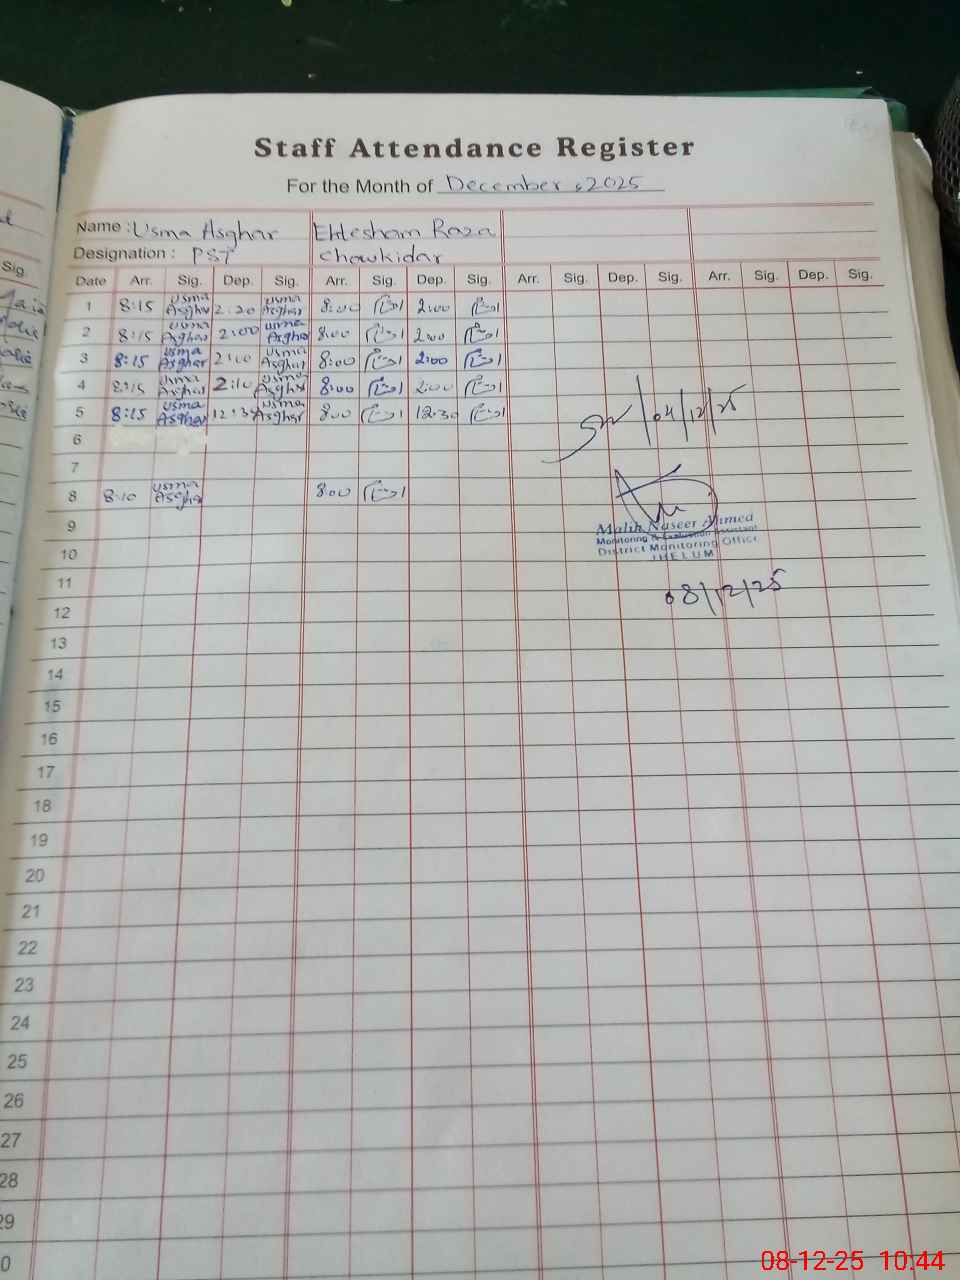 Staff Attendance Register
For the Month of December, 2025
Name : Usma Asghar Ehtesham Raza
Designation : PST Chowkidar
Date Arr. Sig. Dep. Sig. Arr. Sig. Dep. Sig. Arr. Sig. Dep. Sig. Arr. Sig. Dep. Sig.
1 8:15 Usma Asghar 2:20 Usma Asghar 8:00 2:00
2 8:15 Usma Asghar 2:00 Usma Asghar 8:00 2:00
3 8:15 Usma Asghar 2:00 Usma Asghar 8:00 2:00
4 8:15 Usma Asghar 2:10 Usma Asghar 8:00 2:00
5 8:15 Usma Asghar 12:30 Usma Asghar 8:00 12:30
04/12/25
6
7
8 8:10 Usma Asghar 8:00
9
Malik Naseer Ahmed
Monitoring & Evaluation Assistant
10
District Monitoring Office
JHELUM
11
08/12/25
12
13
14
15
16
17
18
19
20
21
22
23
24
25
26
27
28
29
0
Sig.
08-12-25 10:44